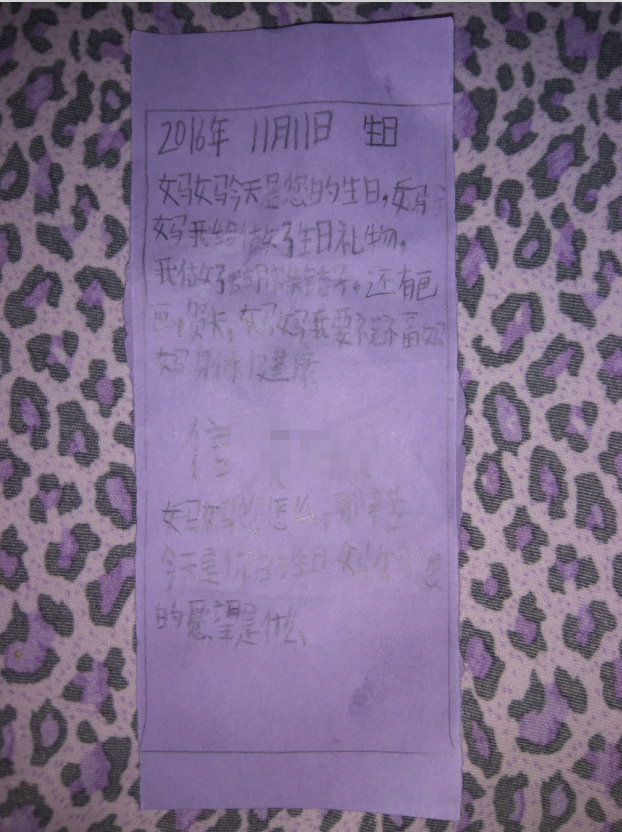 2016年 11月11日 生日
妈妈今天是您的生日,妈
妈我给做好了生日礼物,
我做好了蝴蝶结子。还有画
画,贺卡,妈妈我要祝福妈
妈身体健康
信
妈妈您怎么,那辛苦
今天是你的生日 妈妈您
的愿望是什么